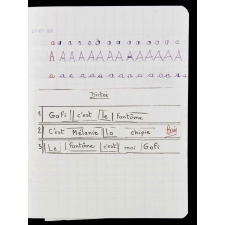 a a a a a a a a a a a
A A A A A A A A A A A
a a a a a a a a a a a
Dictée
1 Gafi c'est le fantôme
2 C'est Mélanie la chipie
3 Le fantôme c'est moi Gafi